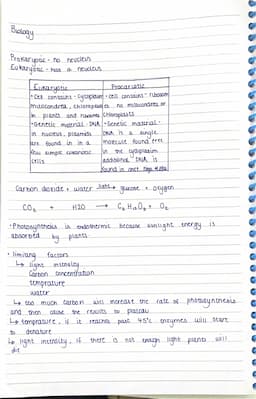 Biology
Prokaryotic - no nucleus
Eukaryotic - has a nucleus
Eukaryotic
• Cell contains - cytoplasm
mitocondria, chloroplast
in plants and ribosomes
• Genetic material - DNA
in nucleus, plasmids
are found in in a
few simple eukaryotic
cells
Procariotic
• cell contains - ribosom
es. no mitocondria or
chloroplasts
• Genetic material -
DNA is a single
molecule found free
in the cytoplasm
additional DNA is
found in
Carbon dioxide + water light→ glucose + oxygen
CO2 + H2O → C6H12O6 + O2
• Photosynthesis is endothermic because sunlight energy is
absorbed by plants
• limiting factors
↳ light intensity
Carbon concentration
temprature
water
↳ too much carbon will increase the rate of photosynthesis
and then cause the results to
↳ temprature, if it reaches past 45°c enzymes will start
to denature
↳ light intensity, if there is not enough light plants will
die